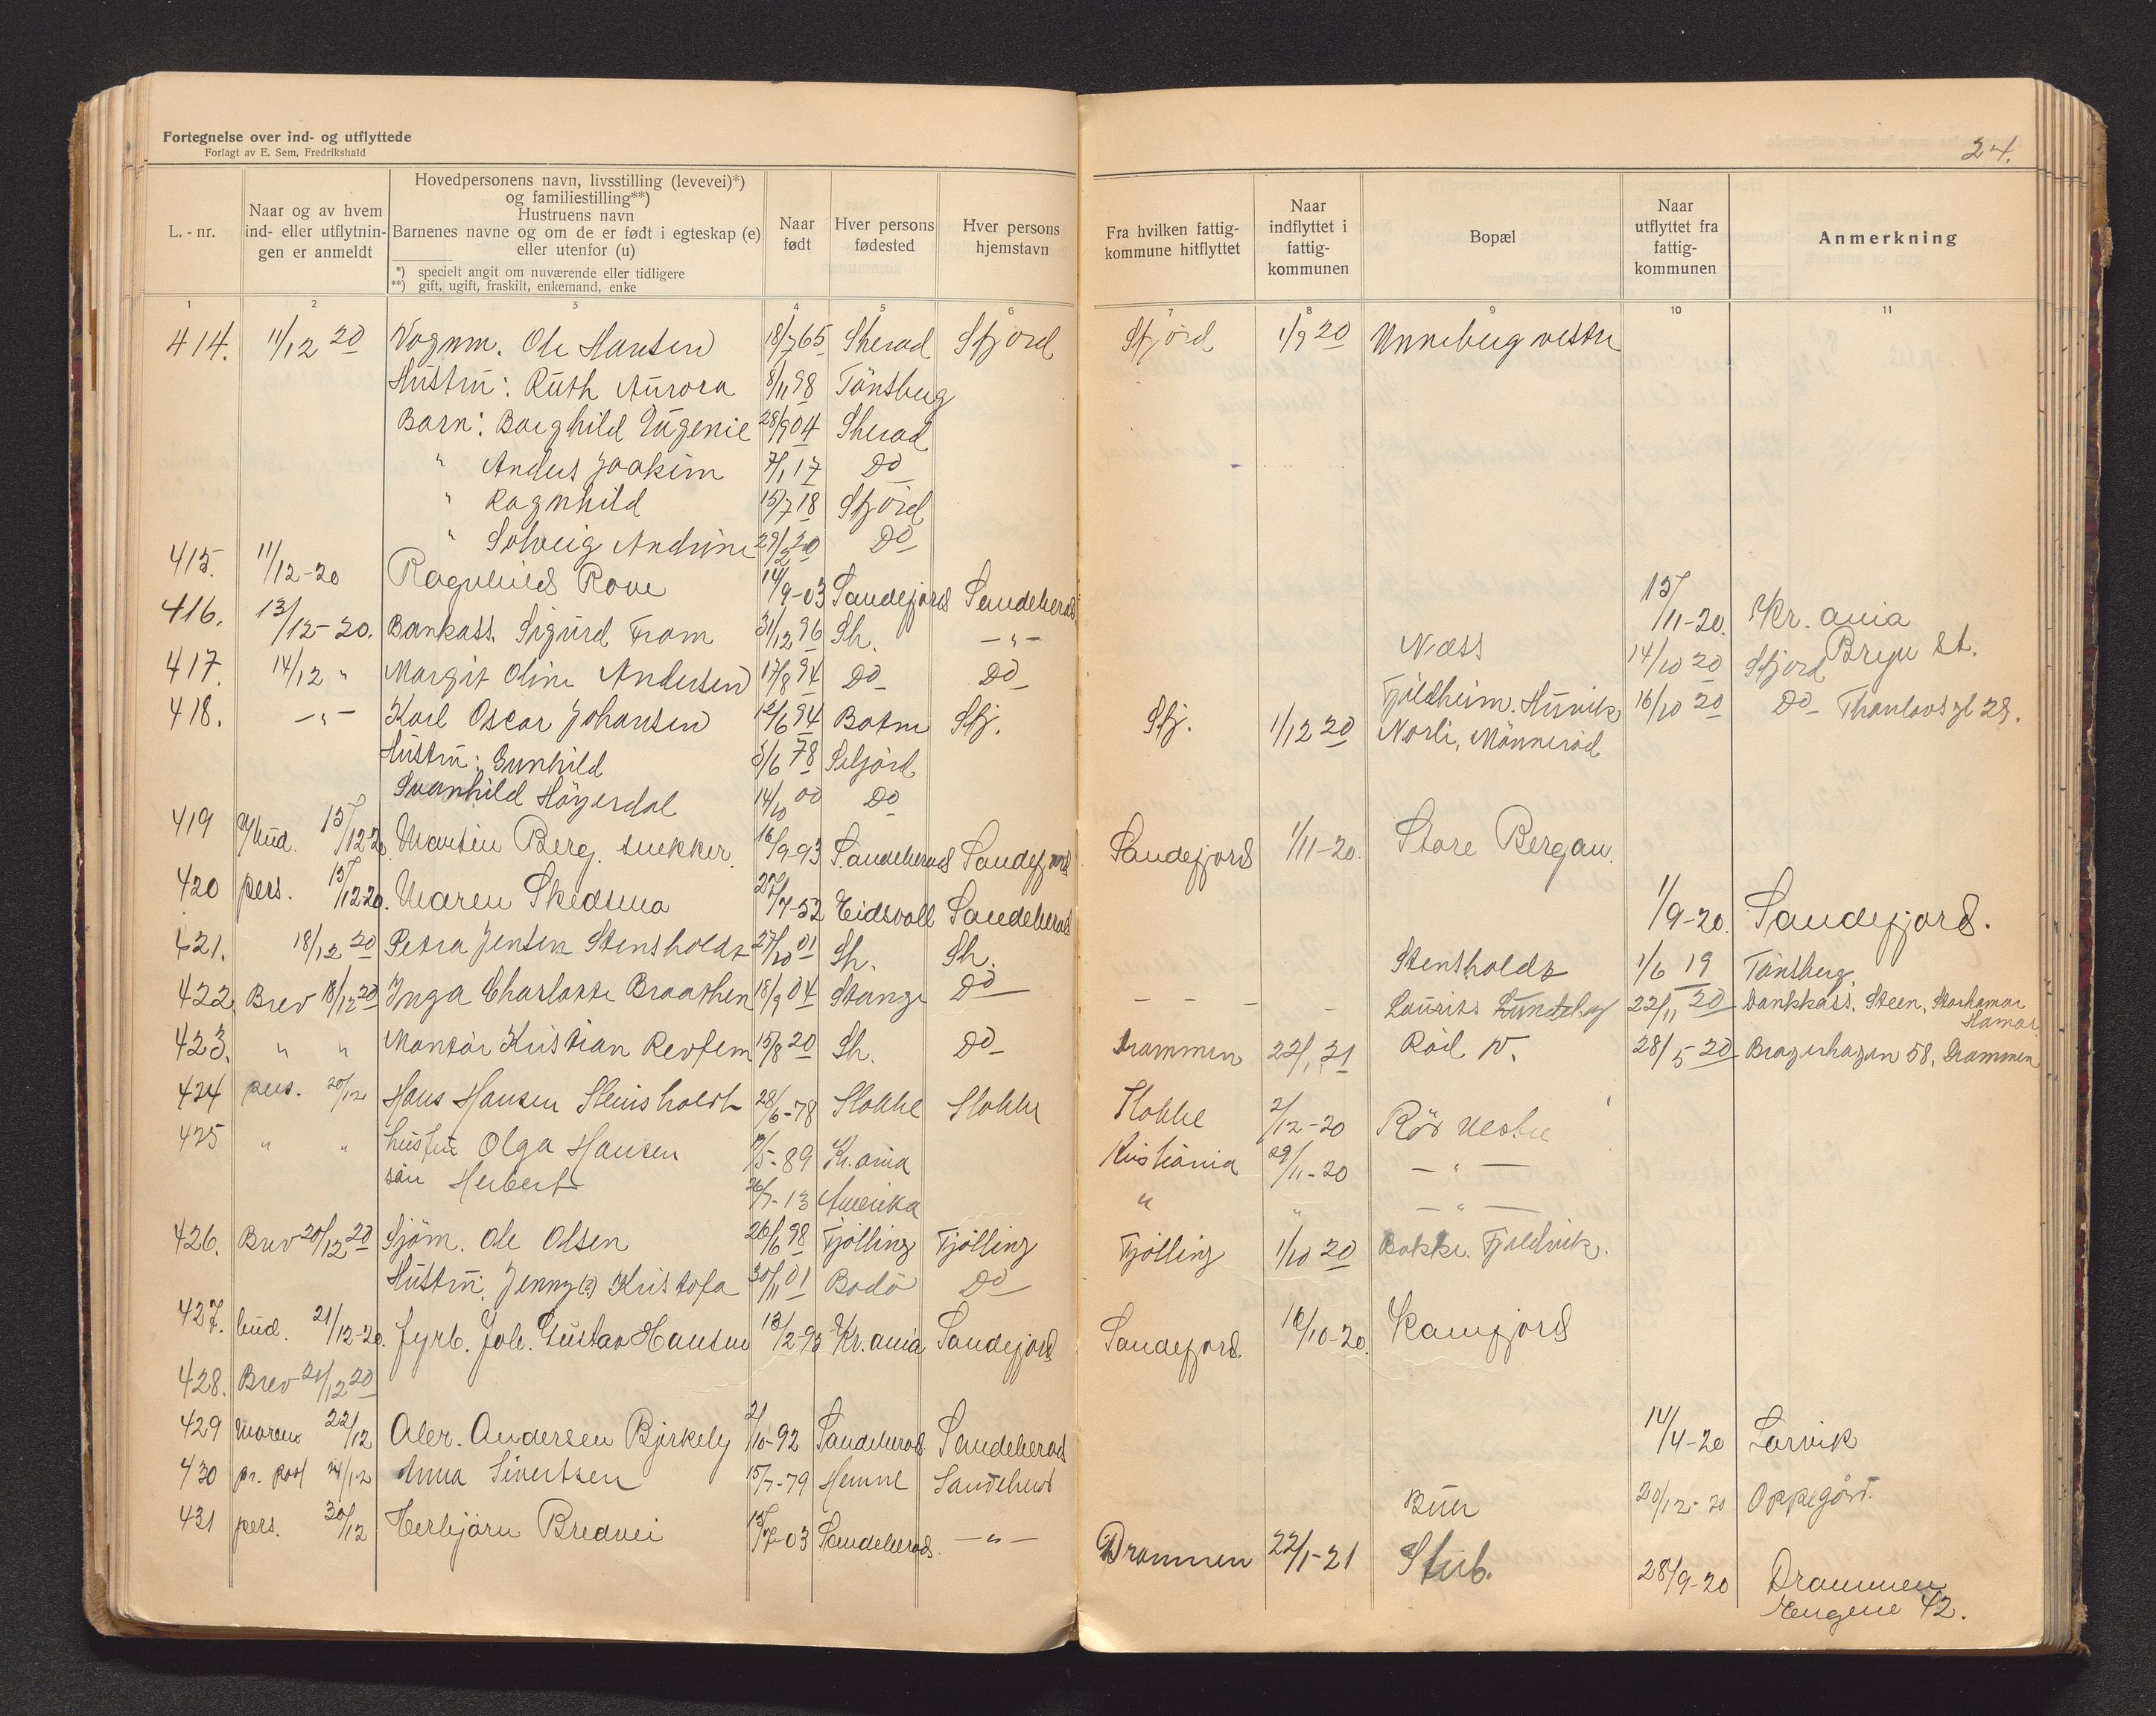 Fortegnelse over ind- og utflyttede
Forlagt av E. Sem, Fredrikshald
24.
L. - nr.
Naar og av hvem ind- eller utflytnin- gen er anmeldt
Hovedpersonens navn, livsstilling (levevei)*)
og familiestilling**)
Hustruens navn
Barnenes navne og om de er født i egteskap (e)
eller utenfor (u)
*) specielt angit om nuværende eller tidligere
**) gift, ugift, fraskilt, enkemand, enke
Naar født
Hver persons fødested
Hver persons hjemstavn
Fra hvilken fattig- kommune hitflyttet
Naar indflyttet i fattig- kommunen
Bopæl
Naar utflyttet fra fattig- kommunen
Anmerkning
1 2 3 4 5 6 7 8 9 10 11
414. 11/12 20 Vognm. Ole Hansen 18/7 65 Sherad Sfjord Sfjörd 1/9 20 Unneberg vestre
Hustru: Ruth Aurora 8/11 98 Tönsberg
Barn: Borghild Eugenie 28/9 04 Sherad
" Anders Joakim 7/1 17 Do
" Ragnhild 15/7 18 Sfjörd
" Solveig Andrine 29/2 20 Do
415. 11/12-20 Ragnhild Rove 14/9-03 Sandefjord Sandeherad 15/11-20. Kr.ania
416. 13/12-20. Bankass. Sigurd Fram 31/12 96 Sh. -"- Næss 14/10 20 Sfjord
417. 14/12 " Margit Oline Andersen 17/8 94 Do Do Fjeldheim. Hunvik 16/10 20 Do Thaulovsgt 29.
418. -"- Karl Oscar Johansen 12/6 94 Botne Sfj. Sfj. 1/12 20 Norli, Månneröd
Hustru: Gunhild 5/6 78 Seljord
Svanhild Höyesdal 14/10 00 Do
419 bud. 15/12 20 Martin Berg. snekker. 16/9-93 Sandeherad Sandefjord Sandefjord 1/11-20. Store Bergan.
420 pers. 15/12 20. Maren Skedsmo 27/7-52 Eidsvoll Sandeherad 1/9-20. Sandefjord.
421. 18/12 20 Petra Jensen Stensholdt 27/10 01 Sh. Sh. Stensholdt 1/6 19 Tönsberg.
422. Brev 18/12 20 Inga Charlotte Braathen 18/9 04 Stange Do - - - - Laurits 22/11 20 Bankkass. Steen, Storhamar
Hamar
423. " " Montör Kristian Revfem 15/8 20 Sh. Do Drammen 22/1 21 Röd N. 28/5 20 Bragerhagen 58, Drammen
424 pers. 20/12 Hans Hansen Stensholdt 28/6-78 Stokke Stokke Stokke 2/12-20 Rör vestre
425 " " hustru Olga Hansen 7/5-89 Kr.ania Kristiania 29/11-20 -"-
sön Herbert 26/7-13 Amerika " " -"-
426. Brev 20/12 20 Sjöm. Ole Olsen 26/6 98 Tjölling Tjölling Tjölling 1/10 20 Bakke. Fjeldvik.
Hustru: Jenny(?) Kristofa 30/11 01 Bodö Do
427. bud. 21/12-20. fyrb. Joh. Gustav Hansen 13/2-93 Kr.ania Sandefjord Sandefjord. 16/10-20. Kamfjord
428. Brev 21/12 20
429 22/12 Alex. Andersen Bjerkely 21/10-92 Sandeherad Sandeherad 14/4-20 Larvik
430 pr. post 24/12 Anna Sivertsen 15/7-79 Hemne Sandeherad Buer 20/12-20 Oppegård.
431 pers. 30/12 Herbjörn Bredvei 15/7-03 Sandeherad. -"- Drammen 22/1-21 Stub. 28/9-20 Drammen
Engene 42.